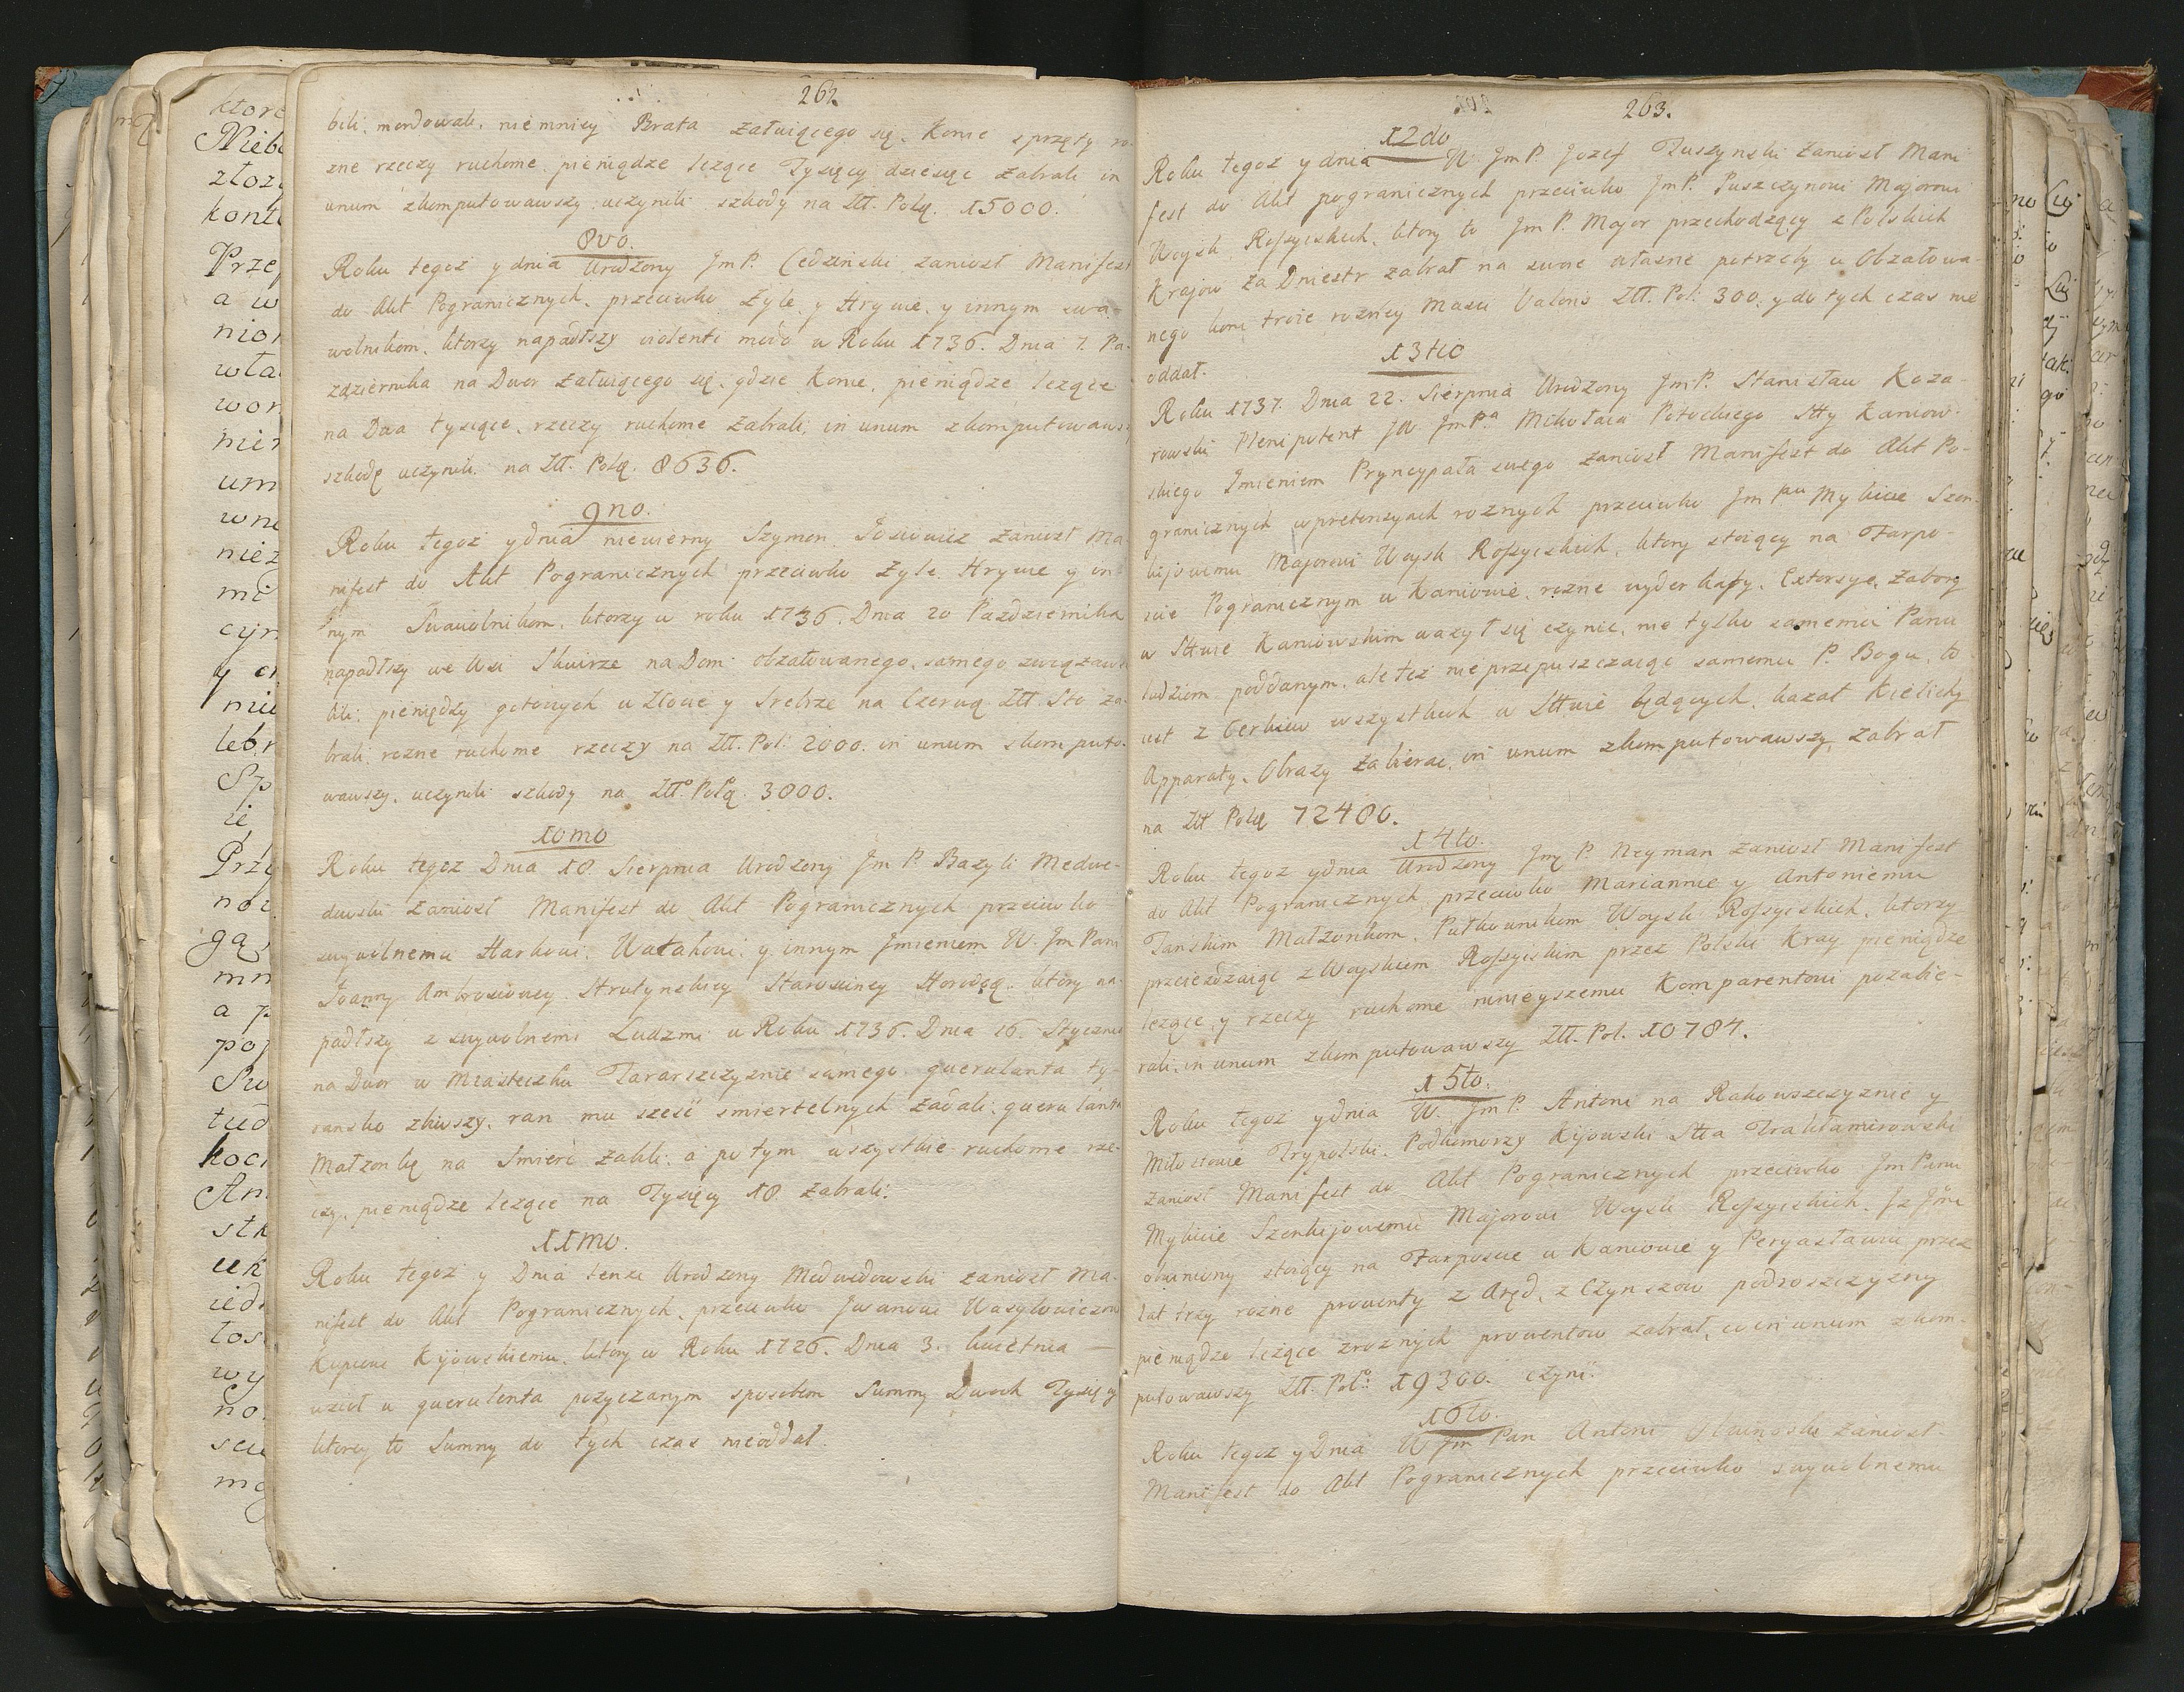 262.
bili, mordowali, niemniey Brata żałuiącego się. Konie sprzęty ro-
zne rzeczy ruchome pieniądze leżące Tysięcy dziesięć zabrali in
unum zkomputowawszy uczynili szkody na Złł. Polq. 15000.
8vo.
Roku tegoż y dnia Urodzony JmP. Cedzinski zaniosł Manifest
do Akt Pogranicznych przeciwko Żyle, y Hrywie, y innym swa-
wolnikom, ktorzy napadłszy violenti modo w Roku 1736. Dnia 7. Pa-
zdziernika na Dwor żałuiącego się, gdzie Konie, pieniądze leżące
na Dwa tysiące, rzeczy ruchome zabrali, in unum zkomputowaws
szkodę uczynili na Złł. Polq. 8636.
9no.
Roku tegoż y dnia niewierny Szymon Josiowicz zaniosł Ma
nifest do Akt Pogranicznych przeciwko Żyle, Hrywie y in
nym Swawolnikom, ktorzy w roku 1736. Dnia 20 Pazdziernika
napadłszy we Wsi Skwirze na Dom obżałowanego, samego związaw
bili, pieniędzy gotowych w Złocie y Srebrze na Czerwq Złł. Sto za-
brali, rozne ruchome rzeczy na Złł. Pol: 2000. in unum zkomputo-
wawszy, uczynili szkody na Złło Polq. 3000.
10mo
Roku tegoz Dnia 18. Sierpnia Urodzony Jm P. Bazyli Medwe-
dowski zaniosł Manifest do Akt Pogranicznych przeciwko
swywolnemu Harkowi, Watahowi, y innym Jmieniem W. Jm Pani
Joanny Ambrosiowey Strutynskiey Starosciney Horodq. ktory na-
padłszy z swywolnemi Ludzmi w Roku 1736. Dnia 16 Stycznia
na Dwor w Miasteczku Tararszczyznie samego querulanta ty-
ransko zbiwszy, ran mu sześć smiertelnych zadali, querulanta
Małżonkę na Smierć zabili, a potym wszystkie ruchome rze-
czy, pieniądze leżące na Tysięcy 18. zabrali.
11mo.
Roku tegoż y Dnia tenże Urodzony Medwedowski zaniosł Ma-
nifest do Akt Pogranicznych, przeciwko Jwanowi Wasylowiczow
Kupcowi Kijowskiemu, ktory w Roku 1726. Dnia 3. kwietnia —
wziął u querulenta pożyczanym sposobem Summy Dwoch Tysięcy
ktorey to Summy do tych czas nieoddał.
263.
12do
Roku tegoż y dnia W. JmP. Jozef Tuszynski zaniosł Mani
fest do Akt pogranicznych przeciwko JmP. Puszczynowi Majorowi
Woysk Rossyiskich, ktory to JmP. Major przechodzący z Polskich
Krajow za Dniestr zabrał na swoie własne potrzeby u Obżałowa-
nego koni troie rożney Masci Valoris Złł. Pol: 300. y do tych czas nie
oddał.
13tio
Roku 1737. Dnia 22. Sierpnia Urodzony JmP. Stanisław Koza-
rowski Plenipotent JW JmPa Mikołaia Potockiego Stty Kaniow-
skiego Jmieniem Pryncypała swego zaniosł Manifest do Akt Po-
granicznych w pretensyach roznych przeciwko Jm Pau Mykicie Szen-
kijowemu Majorowi Woysk Rossyiskich, ktory stoiący na Farpo-
scie Pogranicznym w Kaniowie, rożne wyderkafy, Extorsye, Zabory
w Sttwie Kaniowskim ważył się czynić, nie tylko samemu Panu
ludziom poddanym, ale też nieprzepuszczaiąc samemu P. Bogu, to
iest z Cerkiew wszystkich w Sttwie będących, kazał Kielichy
Apparaty, Obrazy zabierać, in unum zkomputowawszy, zabrał
na Złł Polq 72480.
14to.
Roku tegoż y dnia Urodzony Jmę P. Neyman zaniosł Manifest
do Akt Pogranicznych przeciwko Mariannie y Antoniemu
Tańskim Małżonkom, Pułkownikom Woysk Rossyiskich, ktorzy
przeieżdzaiąc z Woyskiem Rossyiskim przez Polski Kray pieniądze
leżące, y rzeczy ruchome ninieyszemu Komparentowi pozabie-
rali, in unum zkomputowawszy Złł. Pol. 10784.
15to.
Roku tegoż y dnia W. JmP. Antoni na Rakowszczyznie y
Miłostowie Trypolski, Podkomorzy Kijowski Stta Traktamirowski
zaniosł Manifest do Akt Pogranicznych przeciwko Jm Panu
Mykicie Szenkijowemu Majorowi Woysk Rossyiskich,
obwiniony stoiący na Farposcie w Kaniowie y Peryasławiu przez
lat trzy rożne prowenty z Aręd, z Czynszow podroszczyzny
pieniądze leżące z roznych prowentow zabrał, co in unum zkom-
putowawszy Złł. Pol: 19300. czyni.
16to.
Roku tegoż y Dnia W Jm Pan Antoni zaniosł
Manifest do Akt Pogranicznych przeciwko swywolnemu